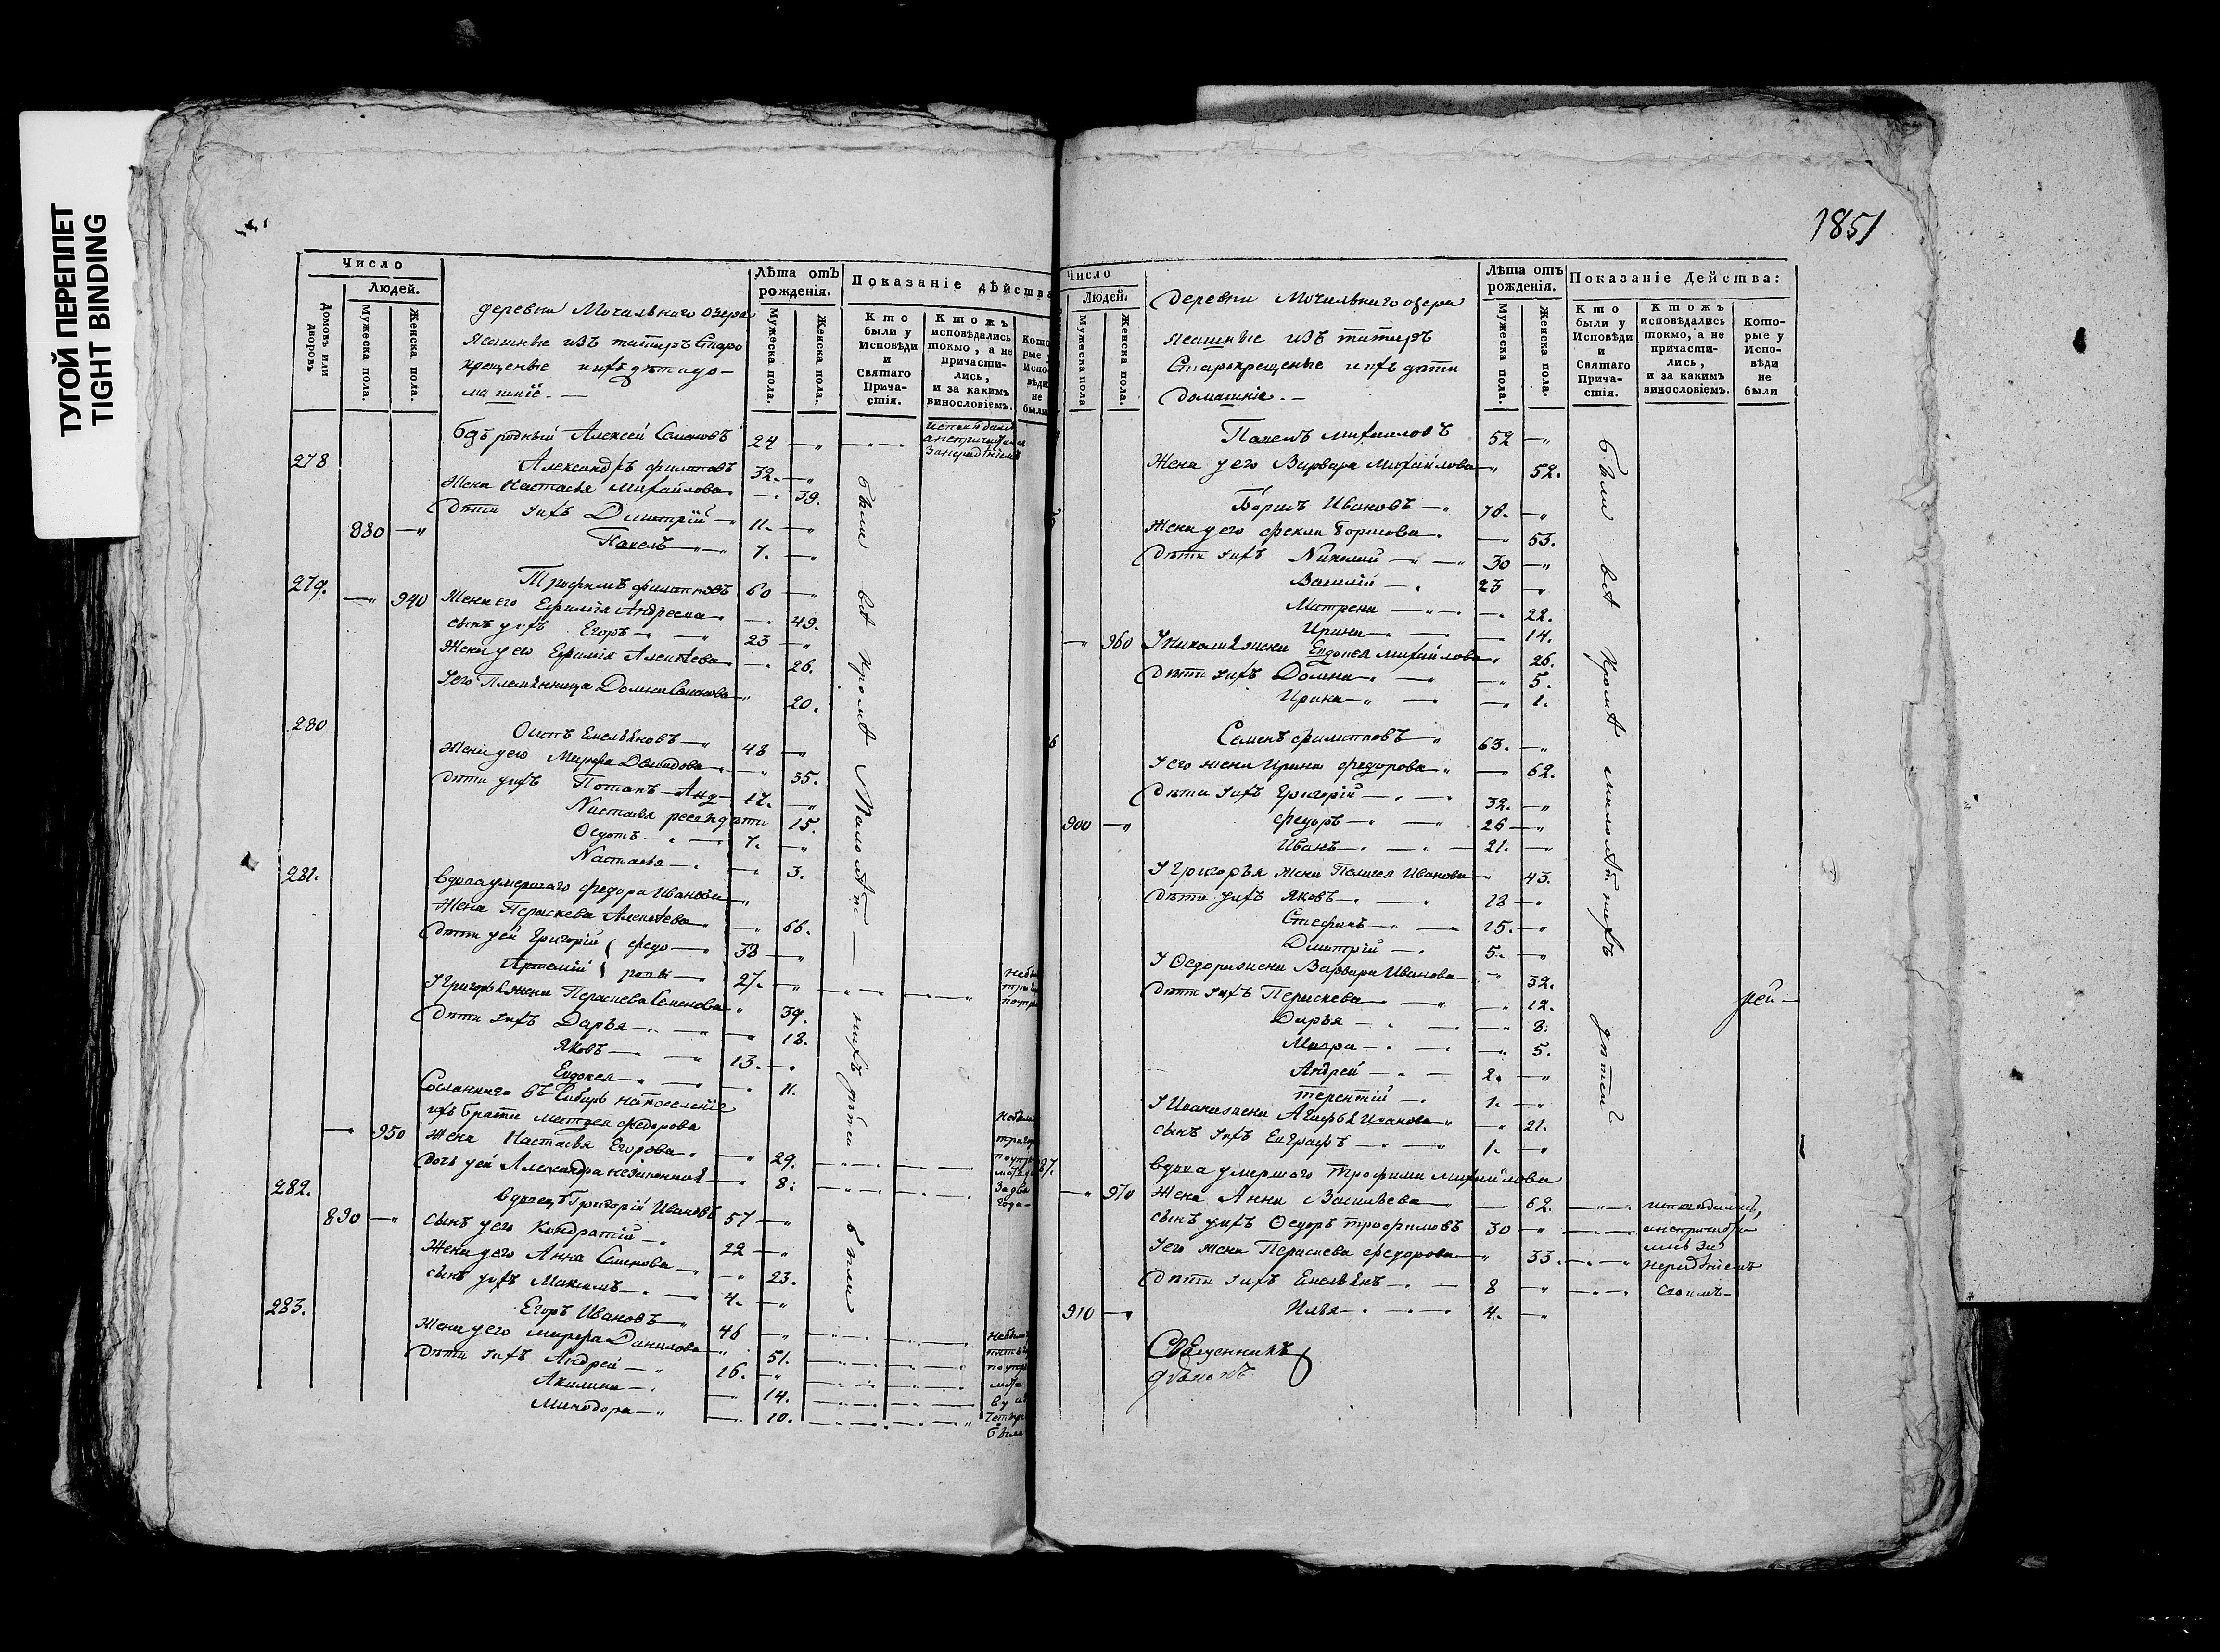 ТУГОЙ ПЕРЕПЛЕТ
TIGHT BINDING
Число
Людей.
Домовъ или дворовъ
Мужеска пола.
Женска пола.
деревни Мочальнаго озера
ясашные изъ татаръ Старо
крещеные ихъ дѣти до-
машніе. —
Лѣта отъ рожденія.
Мужеска пола.
Женска пола.
Показаніе дѣйства
Кто были у Исповѣди и Святаго Прича- стія.
Ктожъ исповѣдались токмо, а не причасти- лись, и за какимъ винословіемъ.
Кото рые у Испо вѣди не были
Алексей Семеновъ 24 — „
278 Александръ Филиповъ 32. — „
Жена Настасья Михайлова — 39.
Дѣти ихъ Димитрій — 11. — „
880 — „ Павелъ — 7. — „
279. Трофимъ Филиповъ 60 — „
— „ 940 Жена его Ефимія Андреева — 49.
сынъ ихъ Егоръ — 23 — „
Жена его Ефимія Алексѣева — 26.
Его Племянница Домна Семенова „ 20.
280 Осипъ Емельяновъ — 48 — „
Жена его Марфа Демидова — „ 35.
Дѣти ихъ Потапъ — 17. — „
Настасья 15.
Федотъ — 7. — „
Настасья — 3.
281. вдова умершаго Федора Иванова
Жена Параскева Алексѣева — 66.
Дѣти ей Григорій Федо — 38 — „
Артемій ровы — 27. — „
Григорья жена Параскева Семенова „ 39.
Дѣти ихъ Дарья — 18.
Яковъ — 13. — „
Евдокея — 11.
Сосланнаго въ Сибирь на поселеніе
ихъ брата Матвея Федорова
— 950 Жена Настасья Егорова — 29.
Дочь ей Александра незаконная — 8.
282. вдовецъ Григорій Ивановъ 57 — „
890 — „ сынъ его Кондратій — 22 — „
Жена его Анна Семенова — „ 23.
сынъ ихъ Максимъ — 4. — „
283. Егоръ Ивановъ 46 — „
Жена его Марфа Данилова — 51.
Дѣти ихъ Андрей — 16. — „
Акилина — 14.
Минодора — 10.
были всѣ кромѣ Малолѣт — нихъ дѣтей были
1851
Число
Людей.
Мужеска пола
Женска пола.
Деревни Мочальнаго озера
ясашные изъ татаръ
Старокрещеные ихъ дѣти
домашніе. —
Лѣта отъ рожденія.
Мужеска пола.
Женска пола.
Показаніе Действа:
Кто были у Исповѣди и Святаго Прича- стія.
Ктожъ исповѣдались токмо, а не причасти- лись, и за какимъ винословіемъ.
Кото- рые у Испо- вѣди не были
Павелъ Михаиловъ 52 — „
Жена его Варвара Михайлова — „ 52.
Борисъ Ивановъ — 78. — „
Жена его Фекла Борисова — 53.
Дѣти ихъ Николай — 30 — „
Василій — 23 — „
Матрена — 22.
Ирина — 14.
— „ 960 Николая жена Евдокея Михайлова „ 26.
Дѣти ихъ Домна — 5.
Ирина — 1.
Семенъ Филиповъ 63. — „
Его жена Ирина Федорова — 62.
Дѣти ихъ Григорій — 32. — „
900 — „ Федоръ — 26 — „
Иванъ — 21. — „
Григорья жена Пелагея Иванова — 43.
Дѣти ихъ Яковъ — 18 — „
Стефанъ — 15. — „
Димитрій — 5. — „
Федора жена Варвара Иванова — 32.
Дѣти ихъ Параскева — 12.
Дарья — 8.
Мавра — 5.
Андрей — 2. — „
Терентій — 1. — „
Ивана жена Агафья Иванова „ 21.
сынъ ихъ Евграфъ — 1. — „
вдова умершаго Трофима Михайлова
— „ 970 Жена Анна Васильева — 62.
сынъ ихъ Федоръ Трофимовъ 30 — „
Его жена Параскева Федорова „ 33.
Дѣти ихъ Емельянъ — 8 — „
910 — „ Илья — 4. — „
были всѣ кромѣ малолѣтнихъ дѣтей
Священникъ